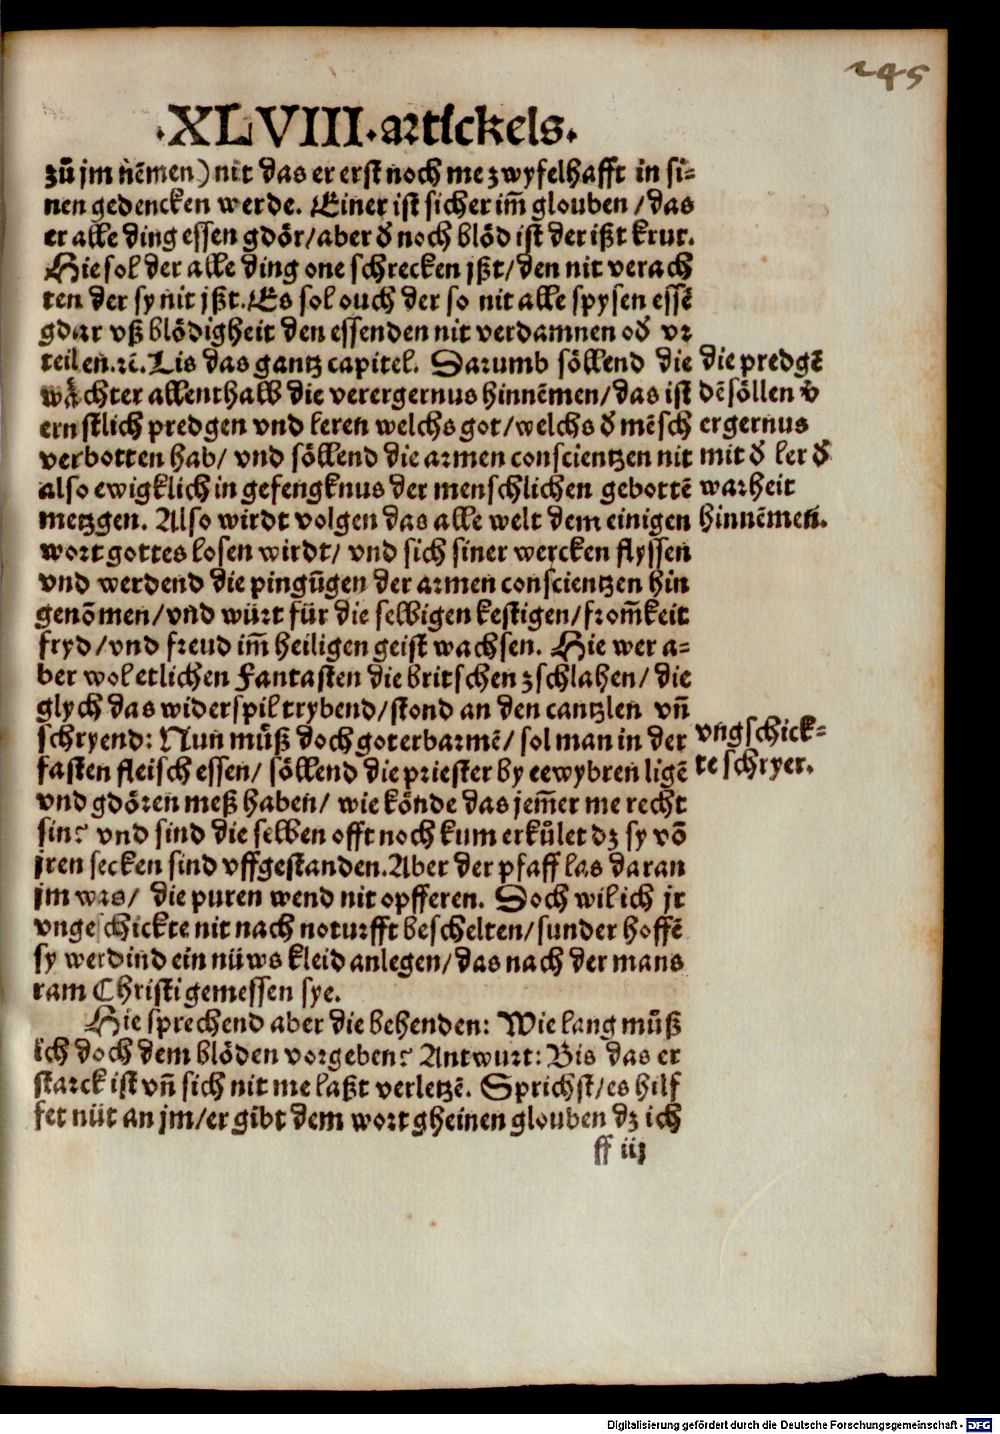 245
·XLVIII·artickels·
zuͦ jm nemen) nit das er erst noch me zwyfelhafft in si-
nen gedencken werde. Einer ist sicher im̃ glouben / das
er alle ding essen gdoͤr/aber ď noch bloͤd ist der ißt krut.
Hie sol der alle ding one schrecken jßt/den nit verach
ten der sy nit jßt. Es sol ouch der so nit alle spysen essẽ
gdar vß bloͤdigheit den essenden nit verdamnen oď vr
teilen.ꝛc̃. Lis das gantz capitel. Darumb soͤllend die
waͤchter allenthalb die verergernus hinnẽmen/das ist
ernstlich predgen vnd leren welchs got/welchs ď mẽsch
verbotten hab/ vnd soͤllend die armen conscientzen nit
also ewigklich in gefengknus der menschlichen gebottẽ
metzgen. Also wirdt volgen das alle welt dem einigen
wort gottes losen wirdt/ vnd sich siner wercken flyssen
vnd werdend die pingũgen der armen conscientzen hin
genõmen/vnd würt für die selbigen kestigen/from̃keit
fryd/vnd freud im̃ heiligen geist wachsen. Hie wer a-
ber wol etlichen Fantasten die britschen zschlahen/ die
glych das widerspil trybend/stond an den cantzlen vñ
schryend: Nun muͦß doch got erbarmẽ/ sol man in der
fasten fleisch essen/ soͤllend die priester by eewybren ligẽ
vnd gdoͤren meß haben/ wie koͤnde das jem̃er me recht
sin? vnd sind die selben offt noch kum erkuͤlet dz sy võ
jren secken sind vffgestanden. Aber der pfaff las daran
jm was/ die puren wend nit opfferen. Doch wil ich jr
vngeschickte nit nach noturfft beschelten/sunder hoffẽ
sy werdind ein nüws kleid anlegen/das nach der mans
ram Christi gemessen sye.
Hie sprechend aber die behenden: Wie lang muͦß
ich doch dem bloͤden vorgeben? Antwurt: Bis das er
starck ist vñ sich nit me laßt verletzẽ. Sprichst/es hilf
fet nüt an jm/er gibt dem wort gheinen glouben dz ich
ff iij
die predgẽ
dẽ soͤllen v̊
ergernus
mit ď ler ď
warheit
hinnẽmen.
vngschick-
te schryer.
Digitalisierung gefördert durch die Deutsche Forschungsgemeinschaft - DFG